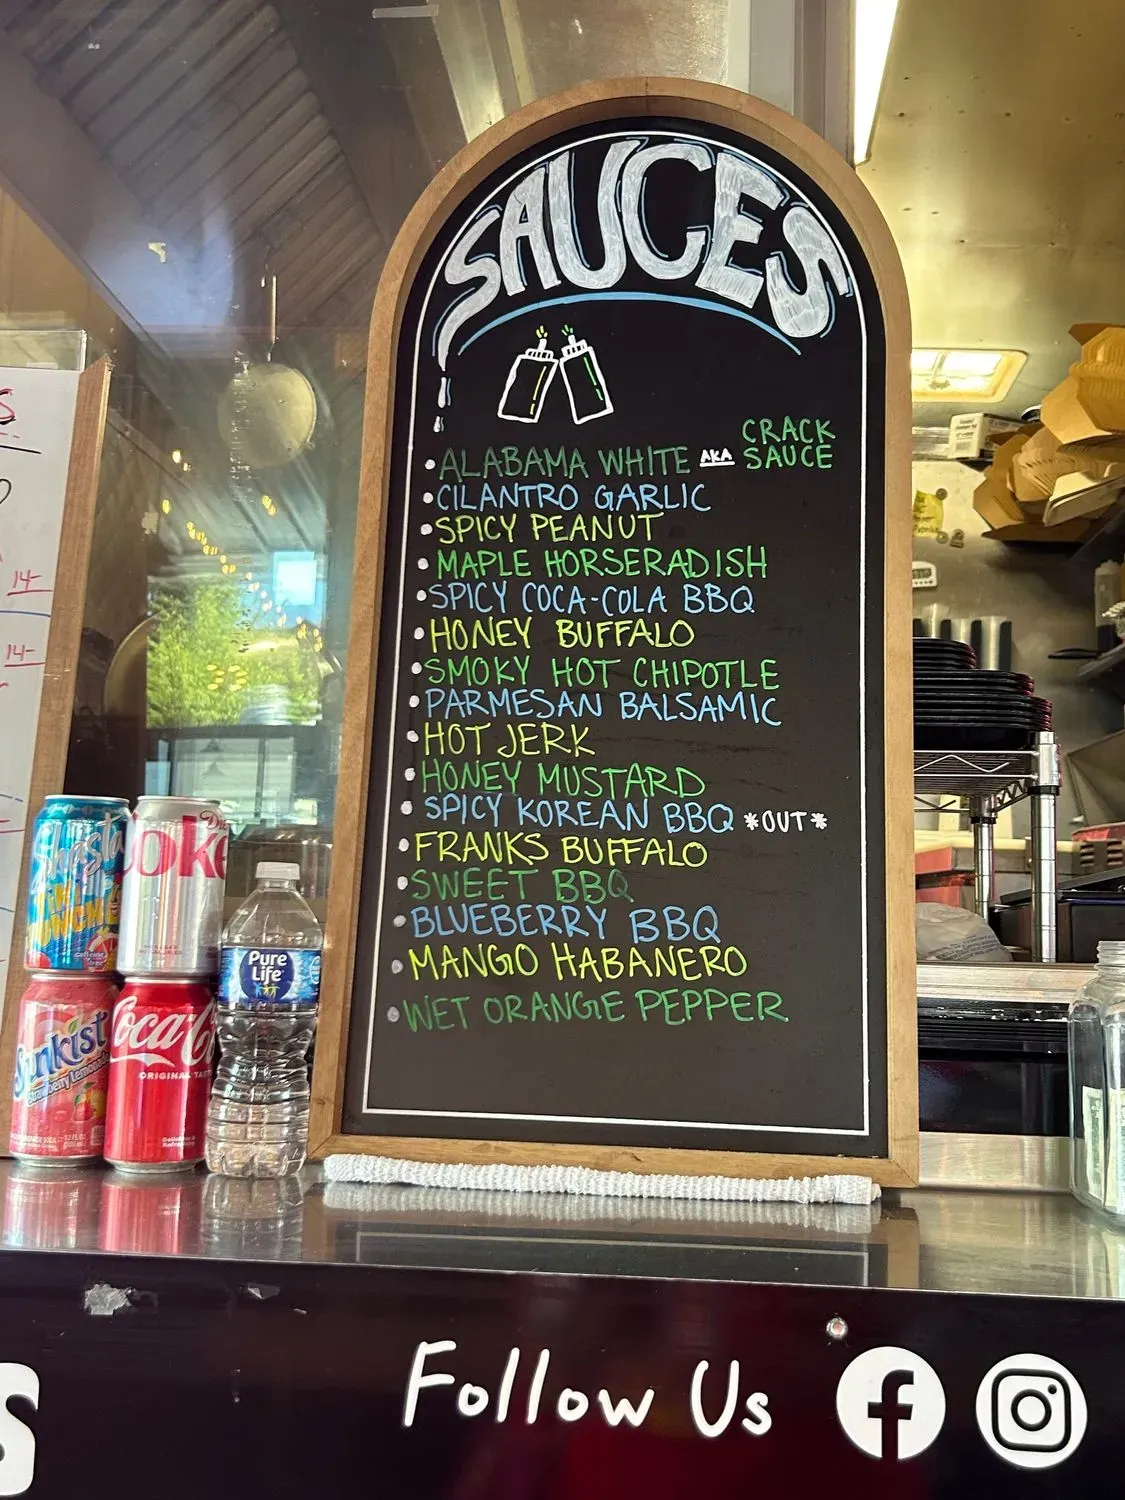 SAUCES
• ALABAMA WHITE AKA CRACK SAUCE
• CILANTRO GARLIC
• SPICY PEANUT
• MAPLE HORSERADISH
• SPICY COCA-COLA BBQ
• HONEY BUFFALO
• SMOKY HOT CHIPOTLE
• PARMESAN BALSAMIC
• HOT JERK
• HONEY MUSTARD
• SPICY KOREAN BBQ *OUT*
• FRANKS BUFFALO
• SWEET BBQ
• BLUEBERRY BBQ
• MANGO HABANERO
• WET ORANGE PEPPER
14-
14-
Shasta
TIKI PUNCH
caffeine free
Diet Coke
Pure Life
Sunkist
Strawberry Lemonade
Coca-Cola
ORIGINAL TASTE
Delicious & Refreshing
Follow Us
S